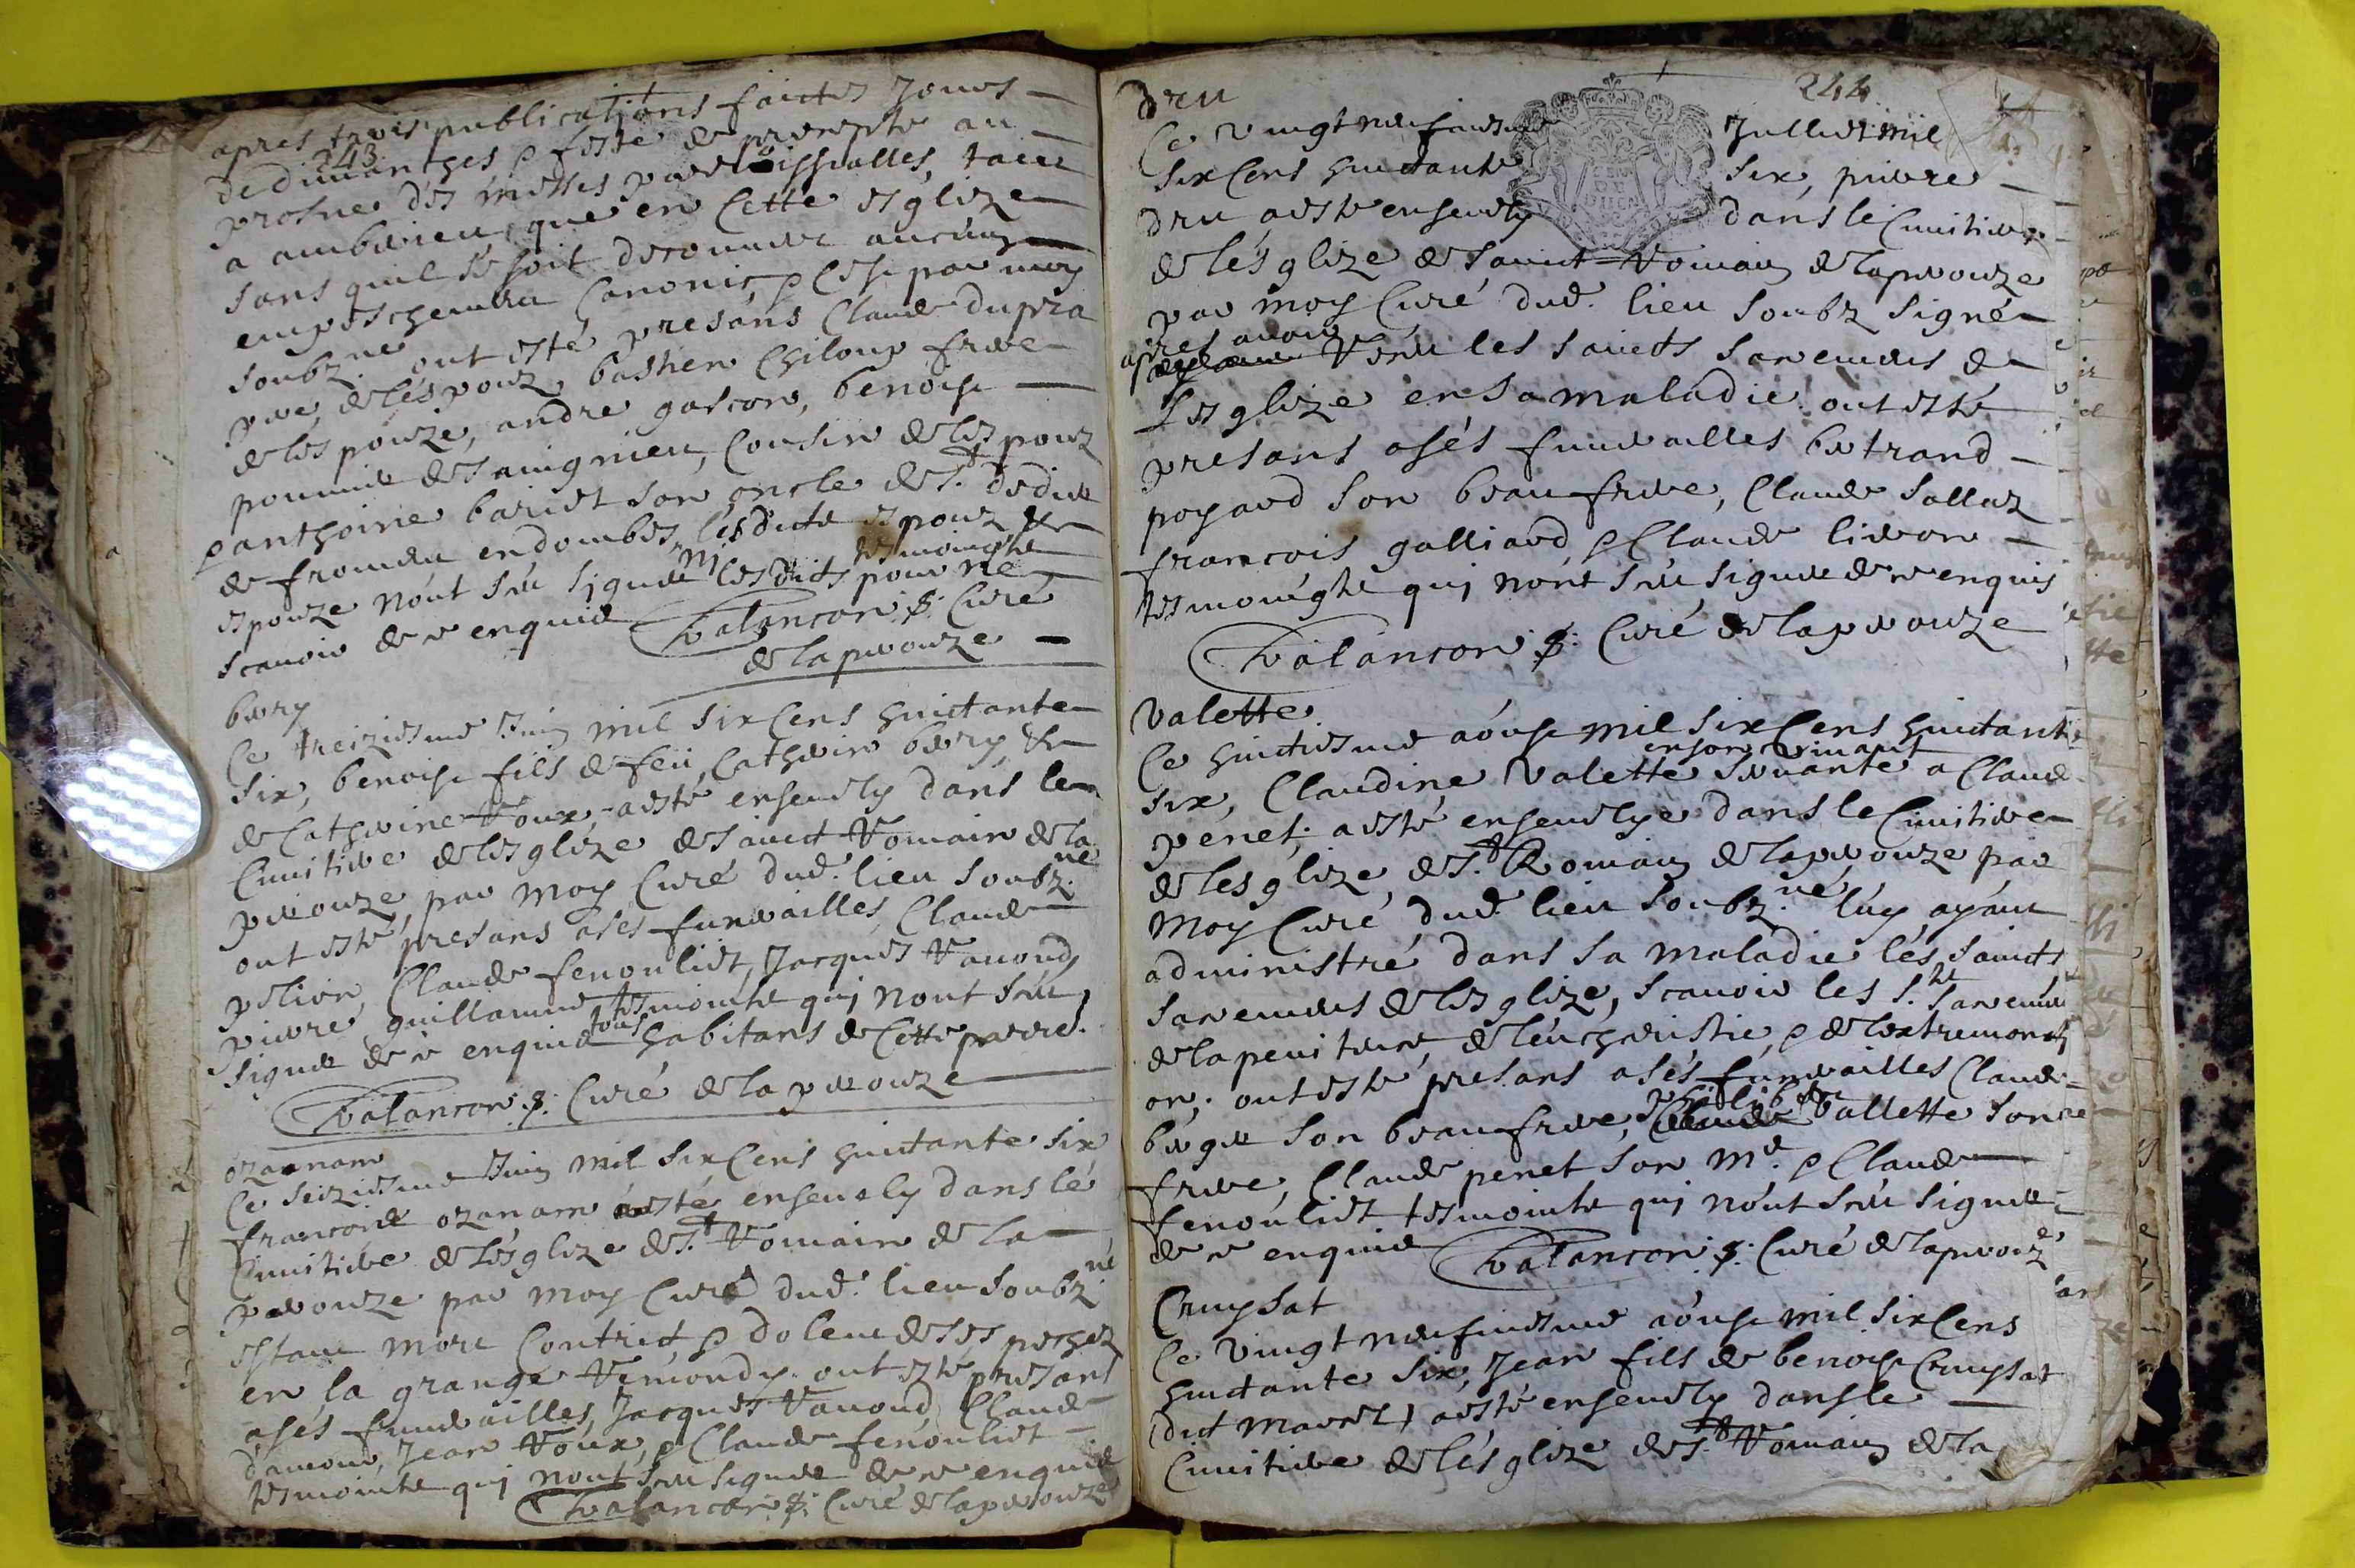 apres trois publications faictes jours
243
de dimanches & feste de precepte au
prosne des messes parroissialles, tant
a amberieu, que en cette esglize
sans quil se soit descouvert aucung
empeschement canonic & cest par moy
soubz.né ont esté presans Claude dupra
pere de lespouz, bastien Chiloup frere
de lespouze, andre gascon, benoist
pommier de saingnieu, Cousin de lespouz
& anthoine bariet son oncle de S.t didier
de fromen en dombes, lesdicts espouz &
espouze nont sceu signer ny lesdicts tesmoingtz pour ne
scauoir de ce enquis Balancon p: Curé
de laperouze
bery
Ce treiziesme Juin mil six Cens huictante
six, benoist fils de feu Catherin bery &
de Catherine Roux, a esté enseuely dans le
Cimitiere de lesglize de sainct Romain de la
perouze, par moy Curé dud. lieu soubz.né
ont esté presans a ses funerailles, Claude
pelion, Claude fenouliet, Jacques Rauoud
pierre guillaume tesmointz qui nont sceu
signer de ce enquis tous habitans de Cette parre.
Balancon p: Curé de la perouze
ozannam
Ce seiziesme Juin mil six Cens huictante six
francoise ozanam a esté enseuely dans le
Cimitiere de lesglize de S.t Romain de la
perouze par moy Curé dud. lieu soubz.né
estant mort Contrict & dolent de ses pechez
en la grange Remondy. ont esté presant
a ses funerailles, Jacques Rauoud, Claude
damour, Jean Roux, & Claude fenouliet
tesmointz qui nont sceu signer de ce enquis
Balancon p: Curé de la perouze
244
dru
Ce vingt neufiesme Juillet mil
six Cens huictante six, pierre
dru a esté enseuely dans le Cimitiere
de lesglize de sainct Romain de laperouze
par moy Curé dud. lieu soubz signé
apres auoir receu les saincts sacremens de
Lesglize en sa maladie. ont esté
presans a ses funerailles bertrand
poyard son beau frere, Claude sallaz
francois galliard & Claude liuron
tesmoingtz qui nont sceu signer de ce enquis
Balancon p: Curé de laperouze
Valette
Ce huictiesme aoust mil six Cens huictante
six, Claudine Valette en son viuant seruante a Claude
penet, a esté enseuelye dans le Cimitiere
de lesglize de S.t Romain de laperouze par
moy Curé dud. lieu soubz.né luy ayant
administré dans sa maladie les saincts
sacremens de lesglize, scauoir les S.tz sacremens
de la penitence, de leucharistie, & de lextremoncti
on; ont esté presans a ses funerailles Claude
berger son beau frere, philibert Vallette son
frere, Claude penet son Me. & Claude
fenouliet tesmointz qui nont sceu signer
de ce enquis Balancon p: Curé de laperouze
Cruysat
Ce vingt neufiesme aoust mil six Cens
huictante six, Jean fils de benoist Cruysat
(dict marrel) a esté enseuely dans le
Cimitiere de lesglize de S.t Romain de la